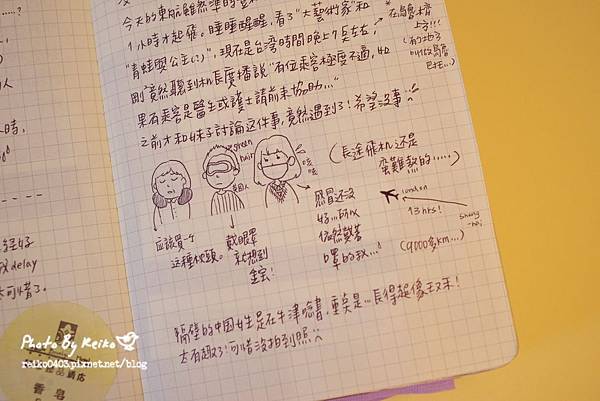 今天的東航雖然準時登
1小時才起飛。睡睡醒醒,看了"大藝術家"和
"青蛙變公主(?)",現在是台灣時間晚上7點左右,
剛竟然聽到机長廣播說"有位乘客極度不適,如
果有乘客是醫生或護士請前來協助..."
之前才和妹子討論这件事,竟然遇到了!希望沒事
*在烏魯木齊
上空!!!
(長途飛机还是
蠻難熬的.....)
green
hair
咳
咳
應該買一个
這種枕頭。
戴眼罩
就想到
感冒还沒
好...所以
依然戴著
口罩的我...!
london
13hrs!
shang
-hai
(9000多km...)
隔壁的中国女生是在牛津唸書,重點是...長得超像
太有趣了!可惜沒拍到照
delay
太可惜了。
Photo By Reiko
reiko0403.pixnet.net/blog
香皂